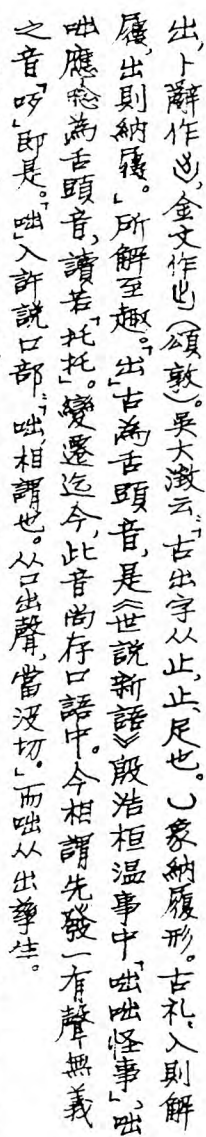 出,卜辭作𡴘,金文作𡳿(頌敦)。吳大澂云:「古出字从止,止、足也。乚象納履形。古礼:入則解
履,出則納履。」所解至趣。「出」古為舌頭音,是《世說新語》殷浩桓温事中「咄咄怪事」,咄
咄應唸為舌頭音,讀若「托托」。變遷迄今,此音尚存口語中。今相謂先發一有聲無義
之音「哕」即是。「咄」入許說口部:「咄,相謂也。从口出聲,當没切。」而咄从出孳生。